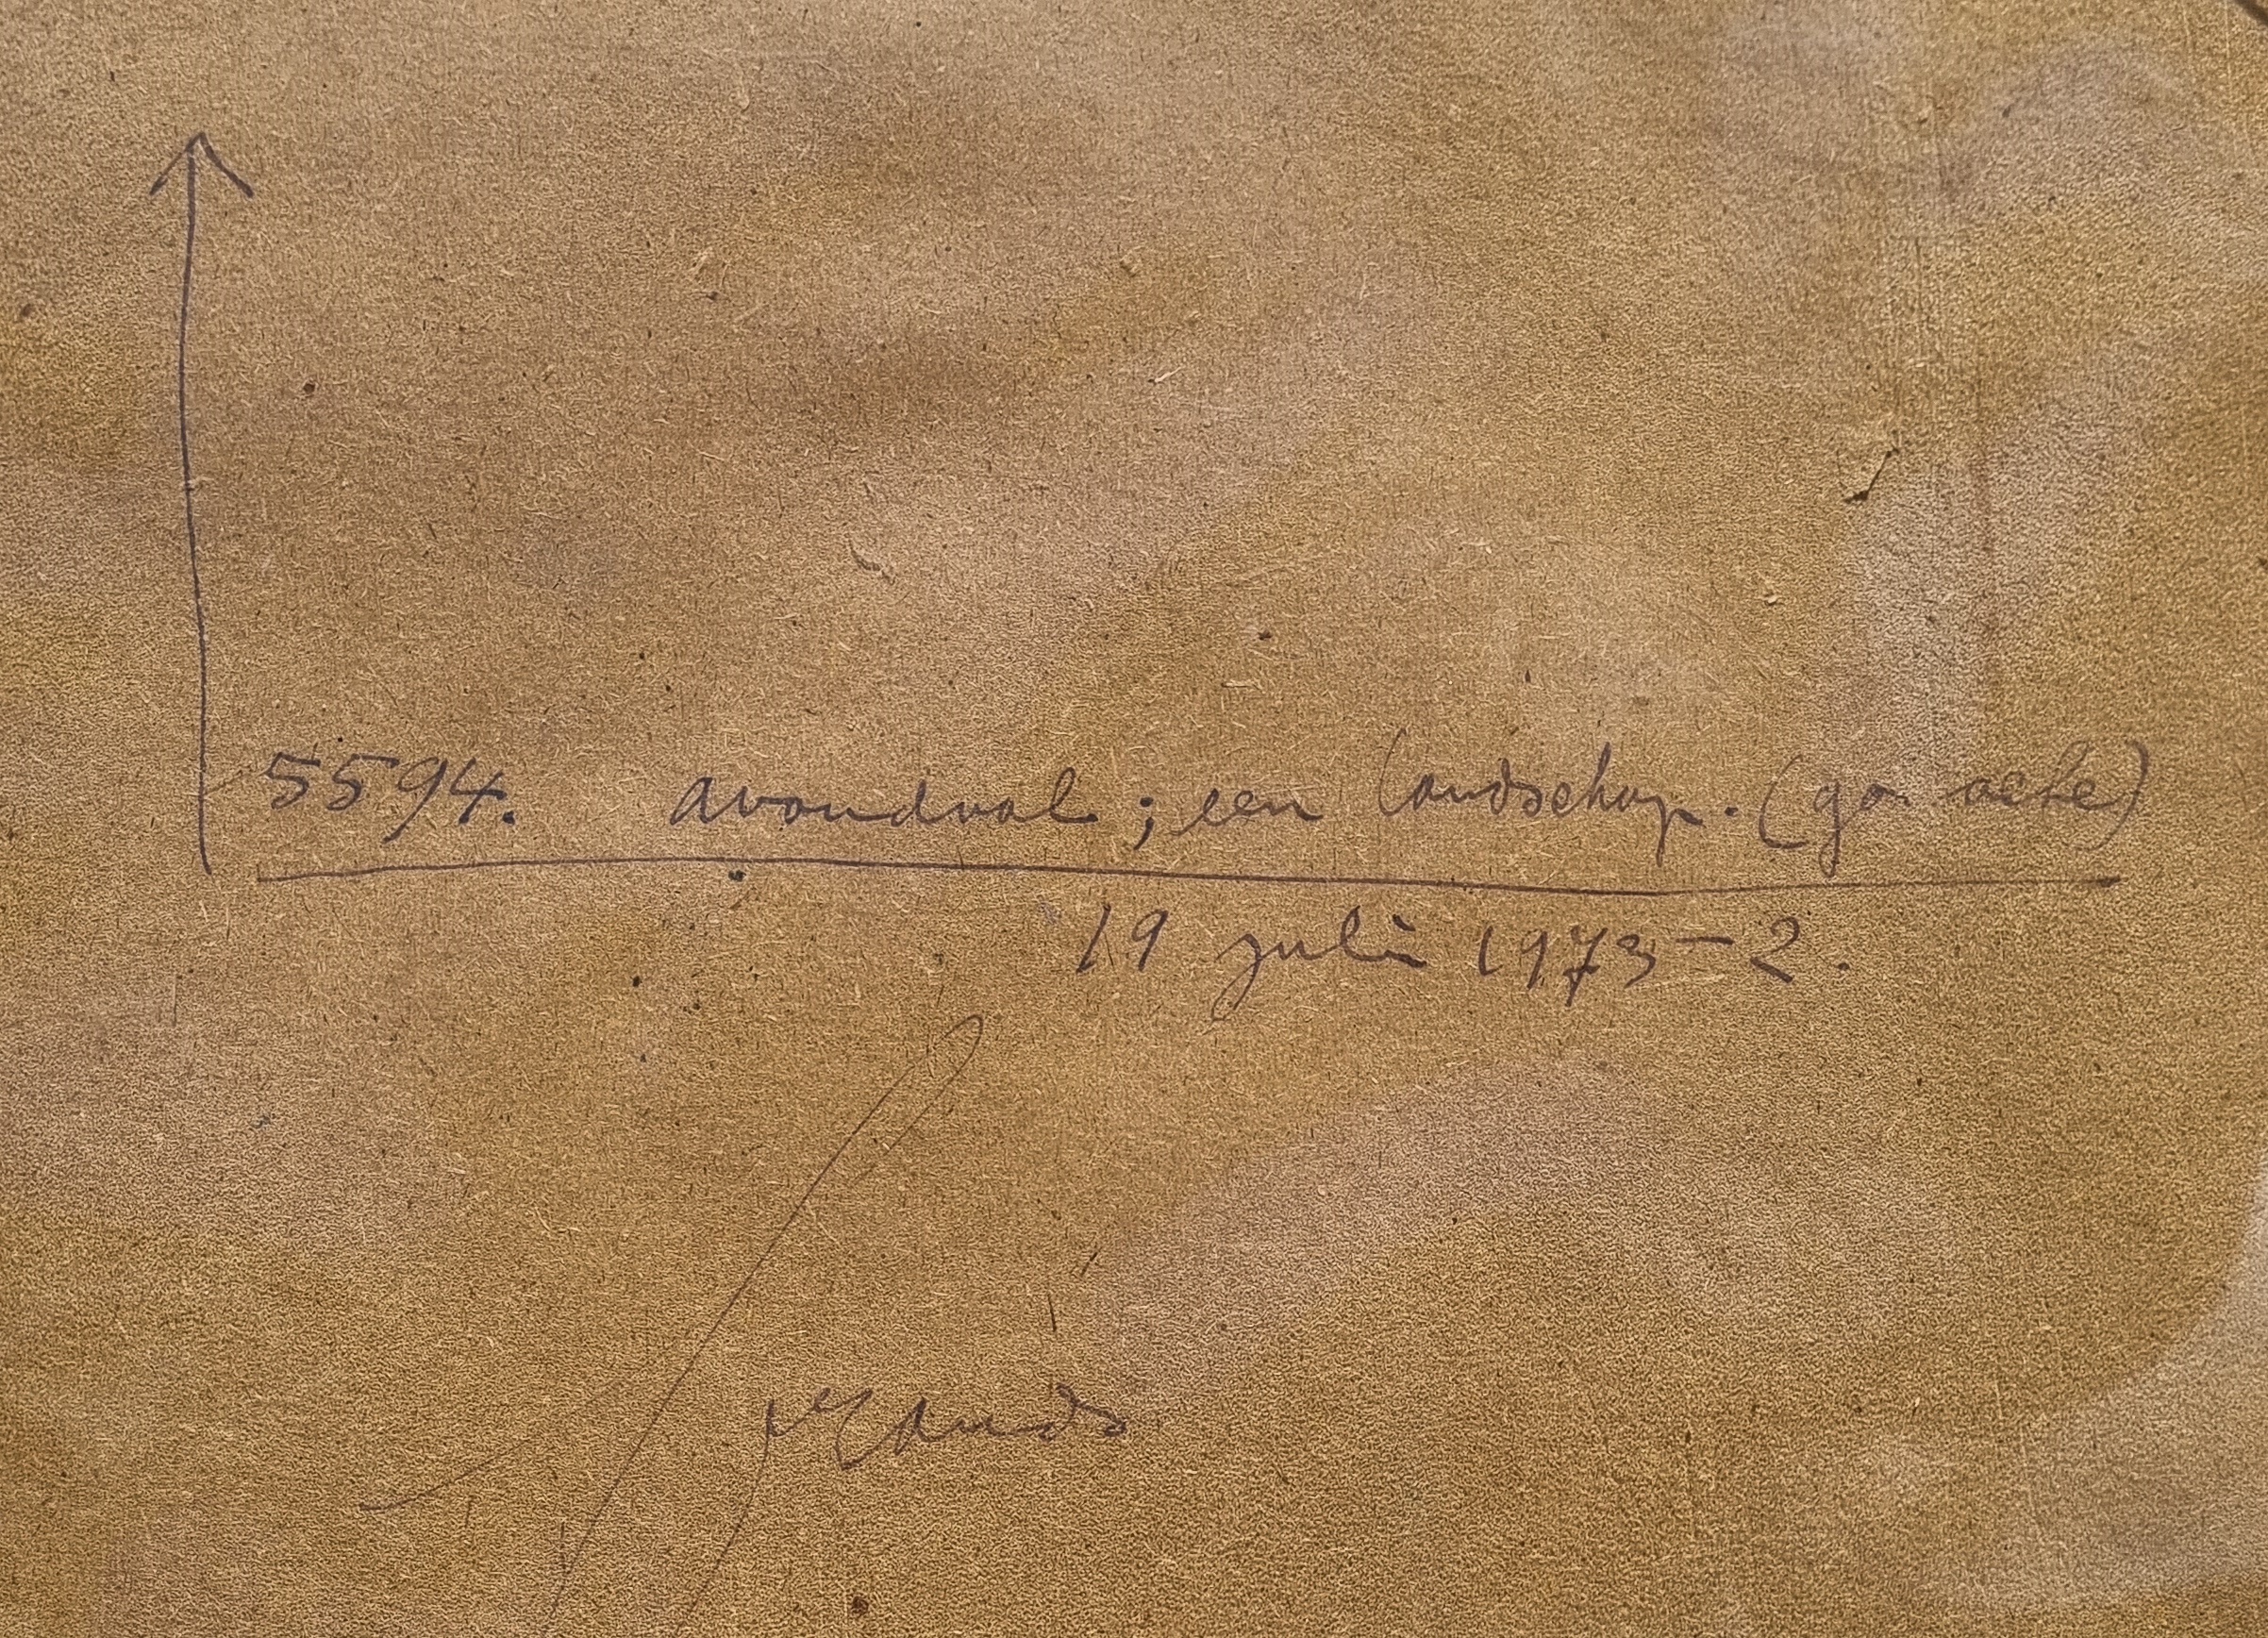 5594. avondval; een landschap. (go ache)
19 juli 1973-2.